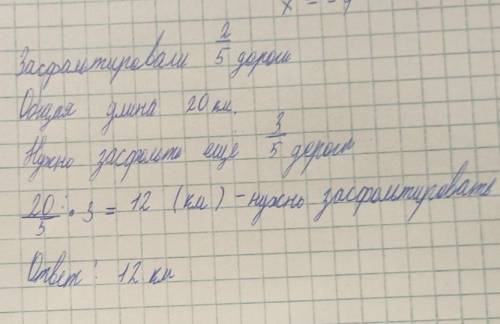 x = - 9
Засфальтировали 2/5 дороги
Общая длина 20 км.
Нужно засфальть ещё 3/5 дороги
20/5 • 3 = 12 (км) - нужно засфальтировать
Ответ: 12 км